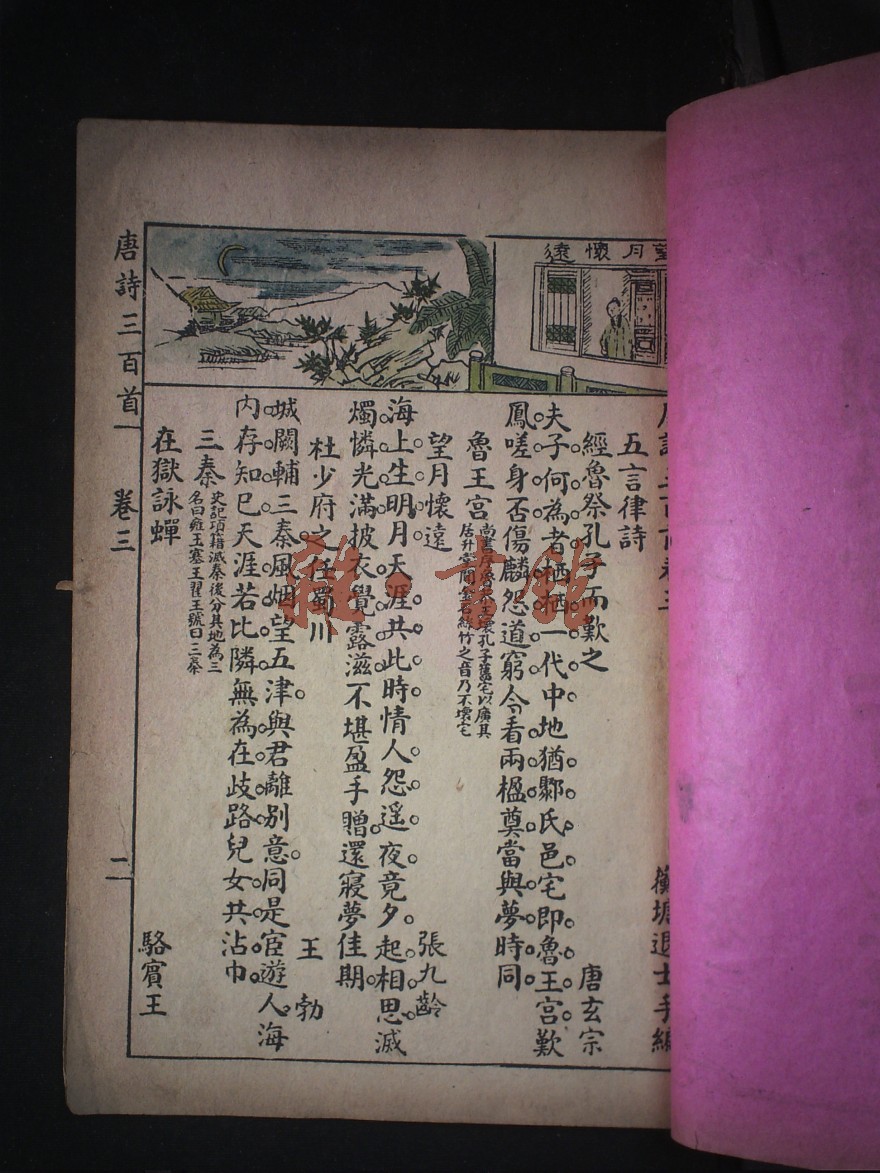 望月懷遠
唐詩三百首卷三
蘅塘退士手編
五言律詩
經魯祭孔子而歎之
唐玄宗
夫子何為者。栖栖一代中。地猶鄹氏邑。宅即魯王宮。歎
鳳嗟身否。傷麟怨道窮。今看兩楹奠。當與夢時同。
魯王宮
居升堂聞金石絲竹之音乃不壞宅
望月懷遠
張九齡
海上生明月。天涯共此時。情人怨遥夜。竟夕起相思。滅
燭憐光滿。披衣覺露滋。不堪盈手贈。還寢夢佳期。
杜少府之任蜀川
王勃
城闕輔三秦。風烟望五津。與君離别意。同是宦遊人。海
内存知巳。天涯若比隣。無為在歧路。兒女共沾巾。
三秦
史記項籍滅秦後分其地為三
名曰雍王塞王翟王號曰三秦
在獄詠蟬
駱賓王
唐詩三百首
卷三
一
雜·書館